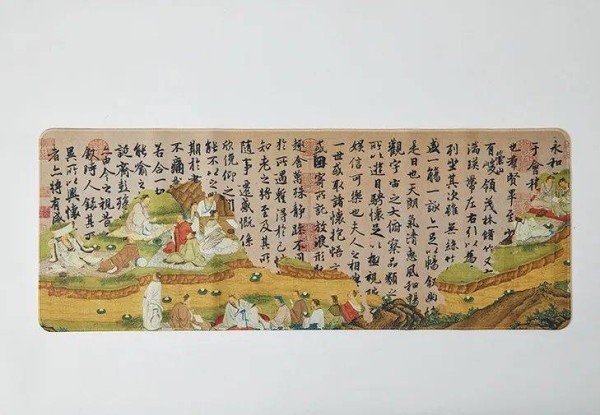 永和
于會稽
也群賢畢至少
有崇山峻領茂林脩竹又
湍暎帶左右引以為
列坐其次雖無絲竹
盛一觴一詠亦足以暢敘幽情
是日也天朗氣清惠風和暢
觀宇宙之大俯察品類之
所以遊目騁懷足以極視聽
娛信可樂也夫人之相與
一世或取諸懷抱悟言
因寄所託放浪形
趣舍萬殊靜躁不同
於所遇蹔得於己
知老之將至及其所
隨事遷感慨係
欣俛仰之閒
能不以之
期於盡
不痛
若合一
能喻
誕齊彭殤
由今之視昔
敘時人錄其所
異所以興懷
者亦將有感